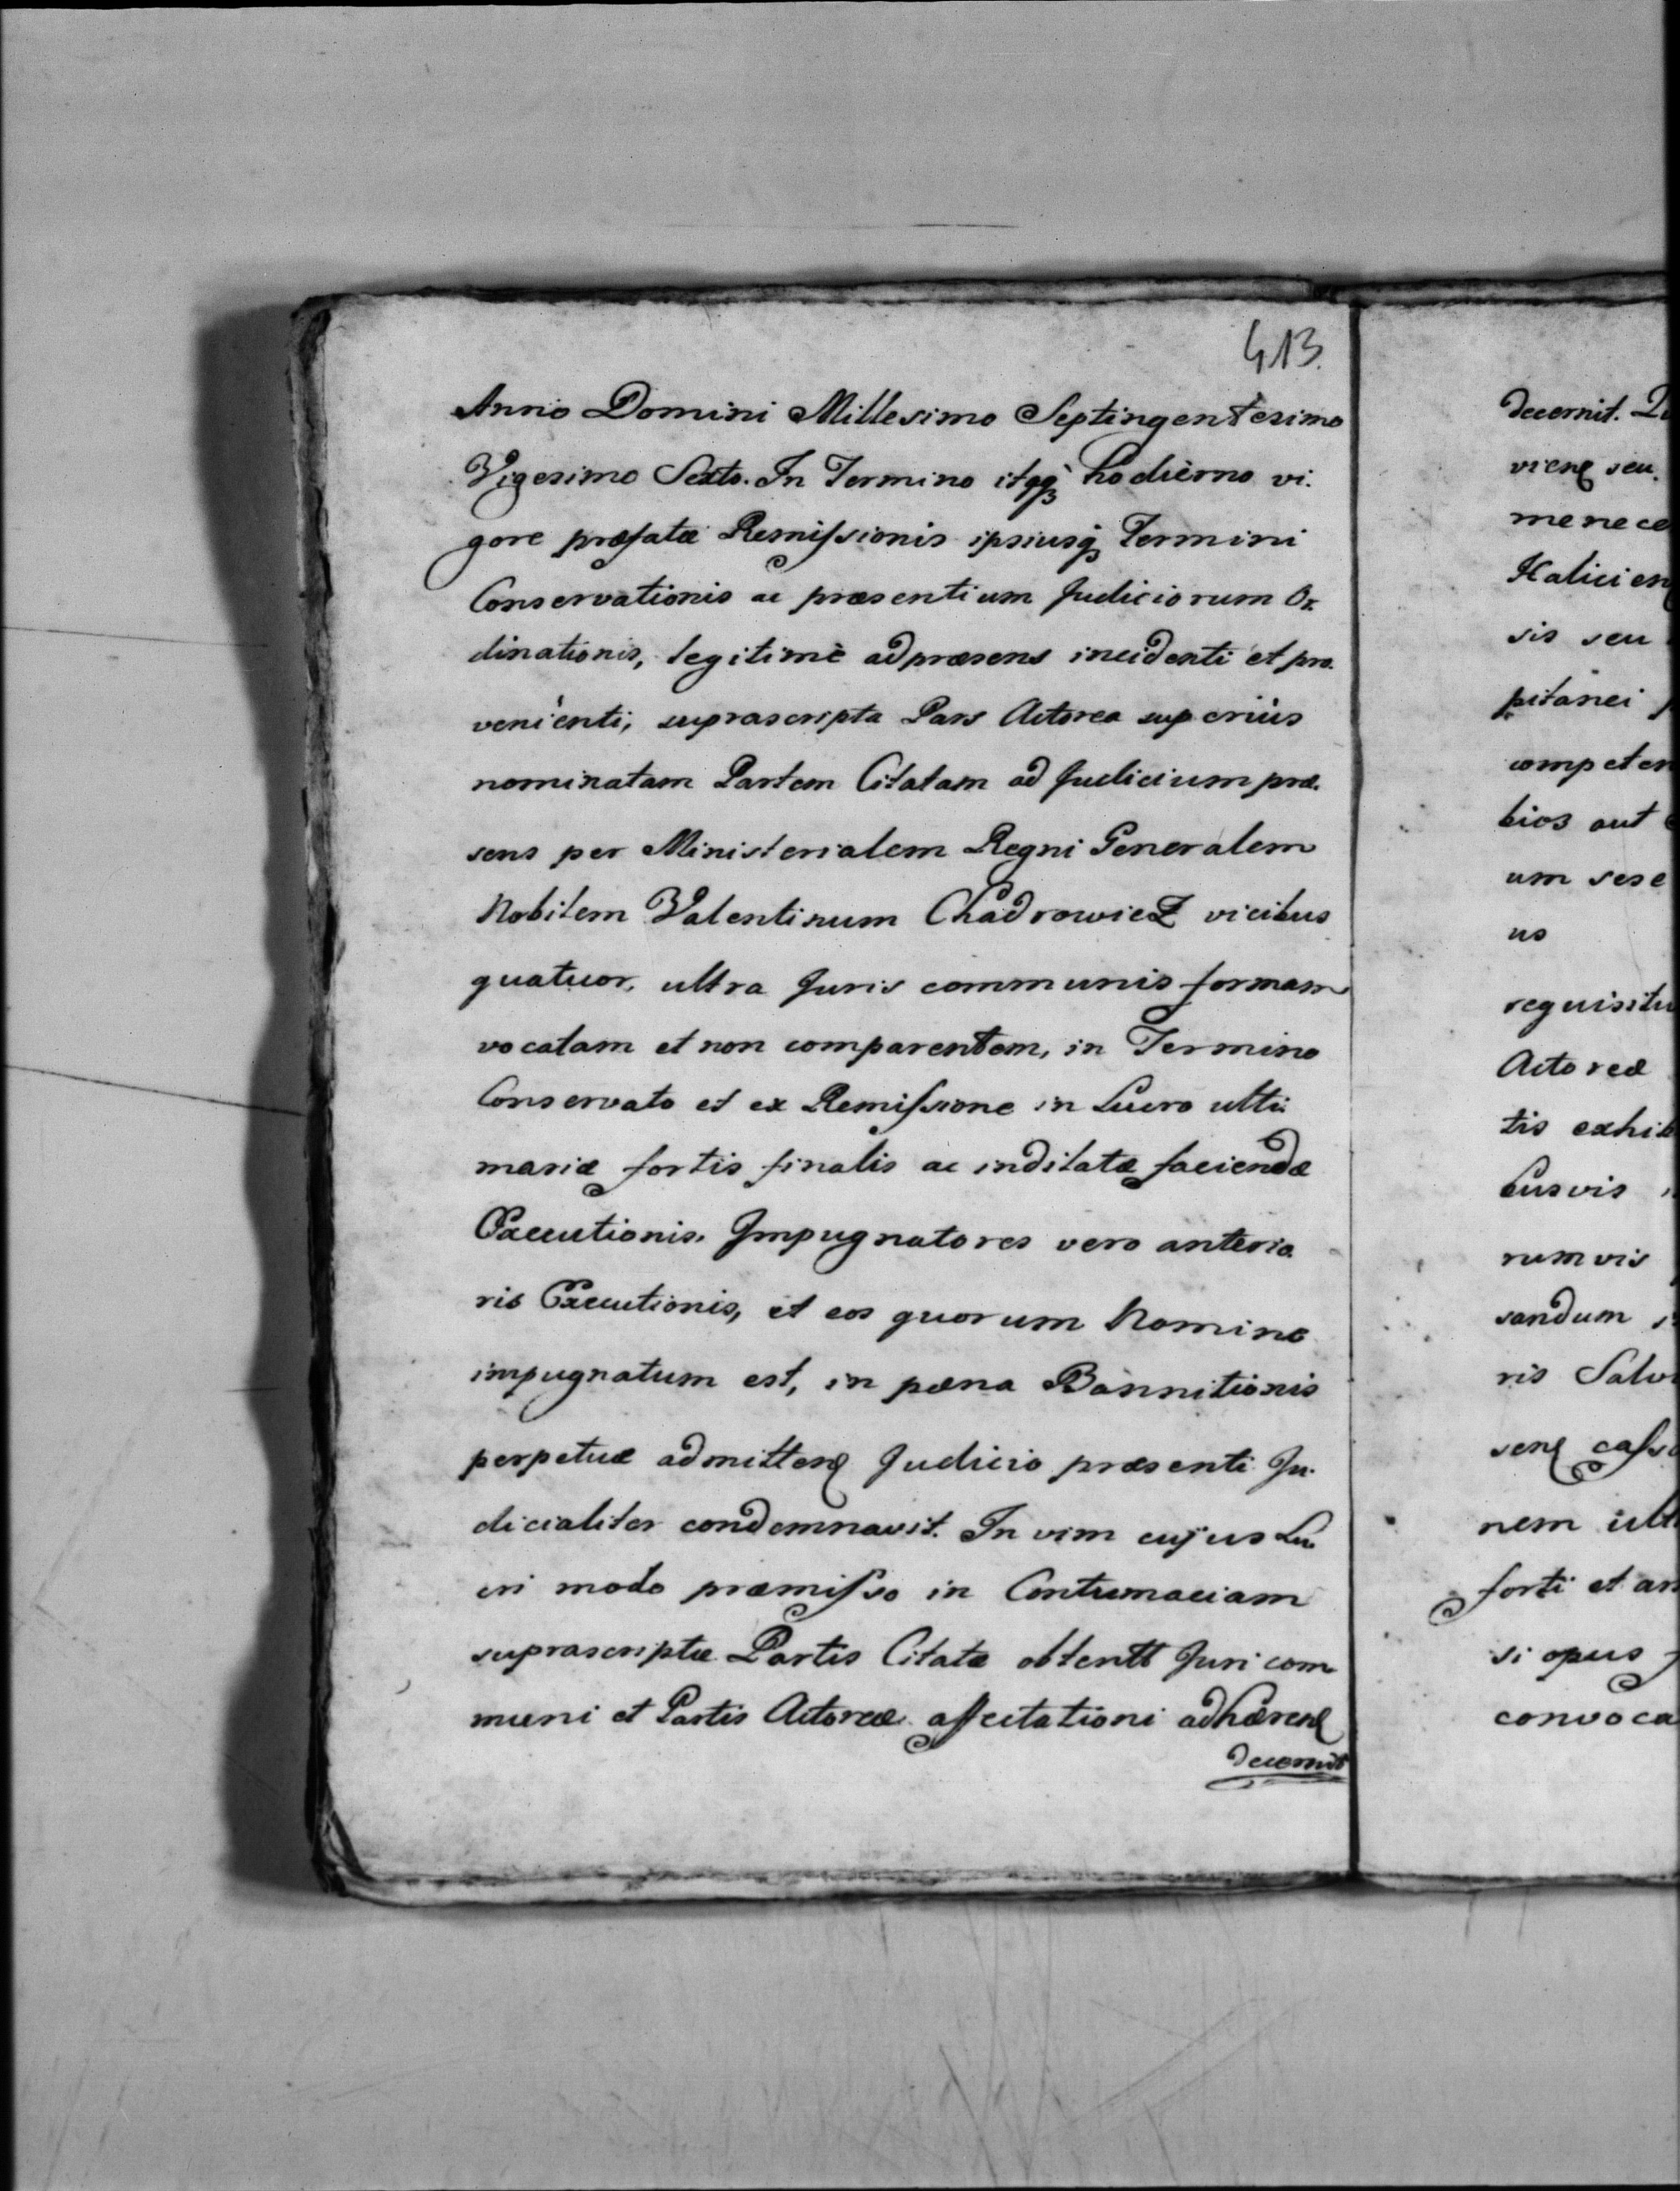 413.
Anno Domini Millesimo Septingentesimo
Vigesimo Sexto. In Termino itqꝫ hodierno vi.
gore præfatæ Remissionis ipsiusqꝫ Termini
Conservationis ac præsentium Judiciorum Or
dinationis, legitimè ad præsens incidenti et pro.
venienti, suprascripta Pars Actorea superiùs
nominatam Partem Citatam ad Judicium præ.
sens per Ministerialem Regni Generalem
Nobilem Valentinum Chadrowicz vicibus
quatuor, ultra Juris communis formam
vocatam et non comparentem, in Termino
Conservato et ex Remissione in Lucro ulti
mariæ fortis finalis ac inditatæ faciendæ
Executionis. Impugnatores vero anterio.
ris Executionis, et eos quorum Nomine
impugnatum est, in pæna Bannitionis
perpetuæ admitten Judicio præsenti Ju.
dicialiter condemnavit. In vim cujus Lu.
cri modo præmisso in Contumaciam
suprascriptæ Partis Citatæ obtentt Juri com
muni et Partis Actoreæ affectationi adhæren
decernit
decernit.
vien seu
me nece
Halicien
sis seu
pitanei
competen
bios aut
um sese
us
requisitu
Actoreæ
tis exhib
busvis
rumvis
sandum
ris Salv
sen casso
nem ult
forti et ar
si opus
convoca